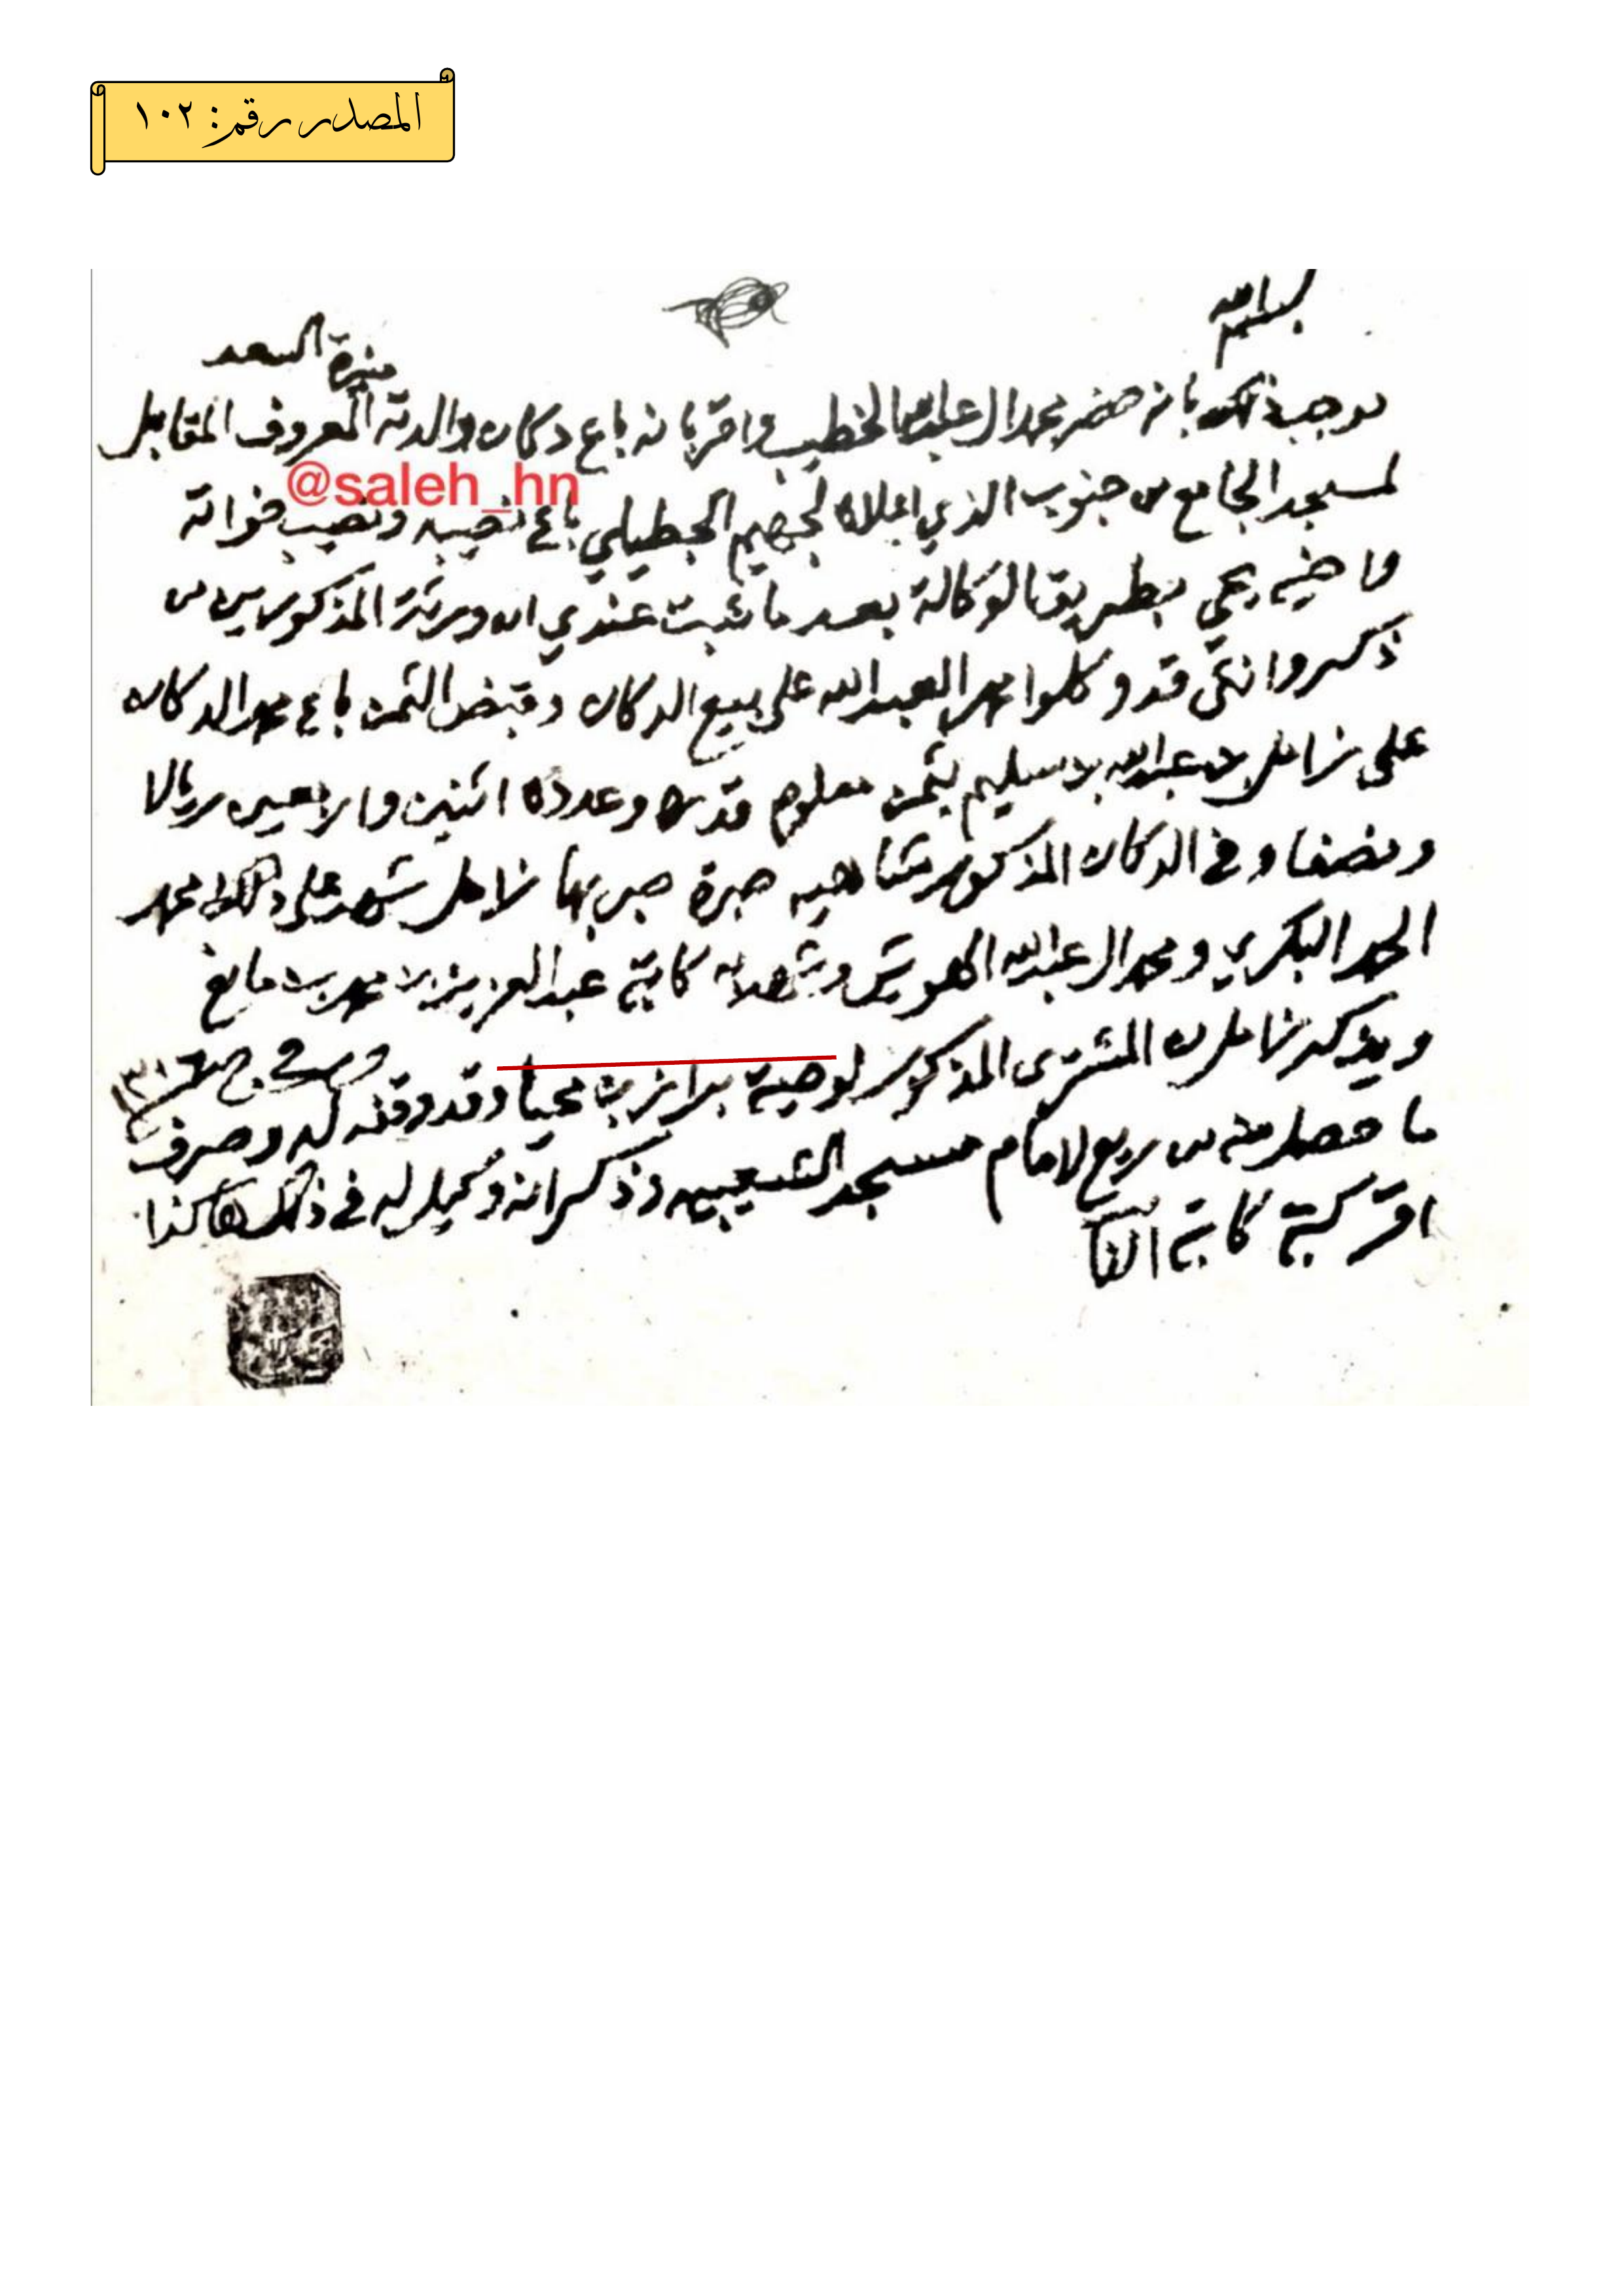 المصدر رقم: ١٠٢
بسم الله
منيرة السعد
موجب ذلك بانه حضر محمد ال عبدالله الخطيب واقر بانه باع دكان والدته المعروف المقابل
@saleh_hn
لمسجد الجامع من جنوب الذي اعلاه لجهيم الجطيلي باع نصيبه ونصيب خواته
واخيه يحي بطريق الوكالة بعد ما ثبت عندي ان ورثة المذكورين من
ذكر وانثى قد وكلوا محمد العبدالله على بيع الدكان وقبض الثمن باع محمد الدكان
على زامل بن عبدالله بن سليم بثمن معلوم قدره وعدده اثنين واربعين ريالا
ونصفا وفي الدكان المذكور صبرة صبر بها زامل شهد على ذلك محمد
الحمد البكري ومحمد ال عبدالله الهويش وشهد به كاتبه عبدالعزيز بن محمد بن مانع
ويذكر زامل ان المشترى المذكور لوصية بن محيا وقد وقفه له وصرف
ما حصل منه من ريع لامام مسجد الشعيبيه وذكر انه وكيل له في ذلك هاكذا
اقر كتبه كاتبه